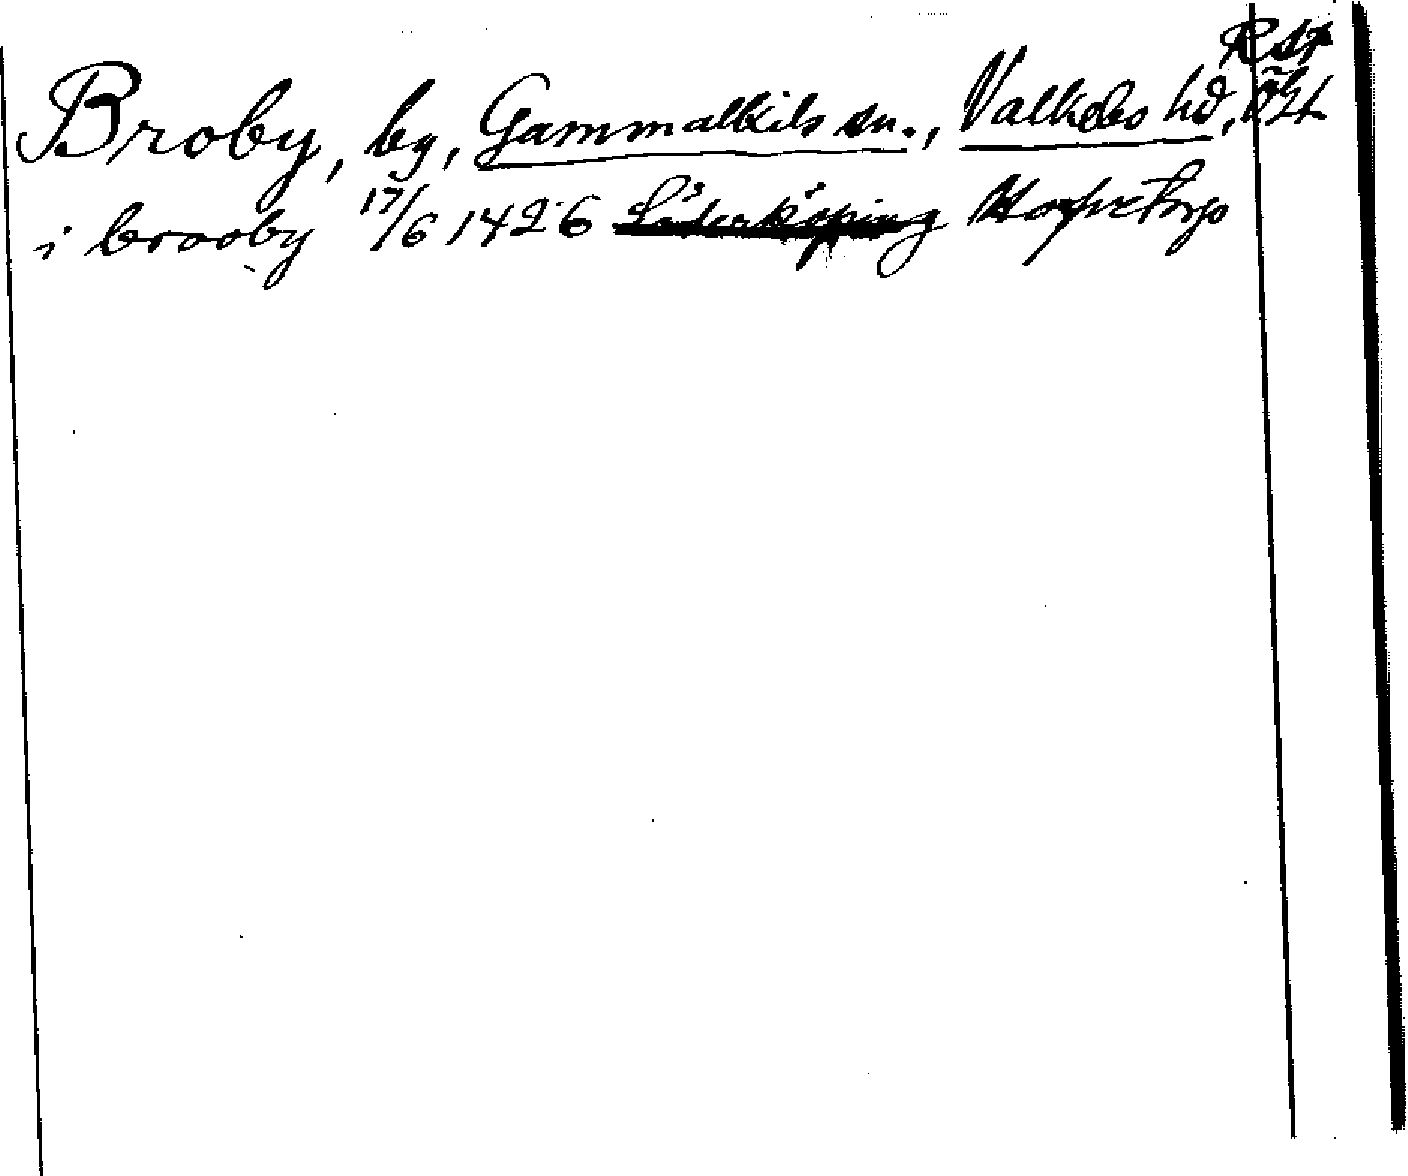 Rst
Broby, by, Gammalkils sn., Valkebo hd, Ögl.
i brooby 17/6 1426 Söderköping